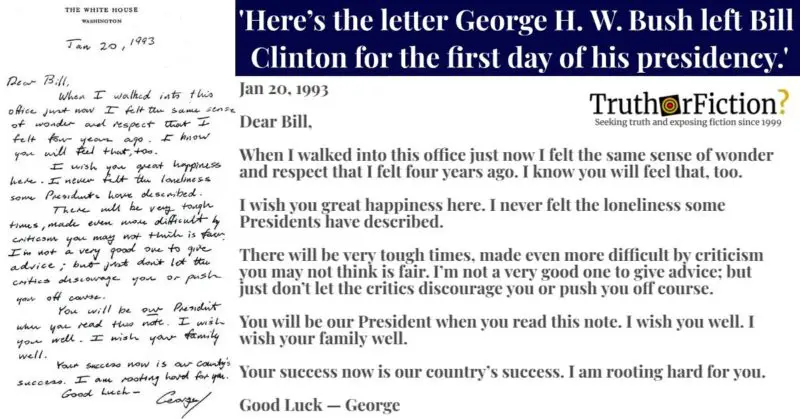 THE WHITE HOUSE
WASHINGTON
Jan 20, 1993
Dear Bill,
When I walked into this
office just now I felt the same sense
of wonder and respect that I
felt four years ago. I know
you will feel that, too.
I wish you great happiness
here. I never felt the loneliness
some Presidents have described.
There will be very tough
times, made even more difficult by
criticism you may not think is fair.
I'm not a very good one to give
advice; but just don't let the
critics discourage you or push
you off course.
You will be our President
when you read this note. I wish
you well. I wish your family
well.
Your success now is our country's
success. I am rooting hard for you.
Good Luck —
George
'Here's the letter George H. W. Bush left Bill
Clinton for the first day of his presidency.'
Jan 20, 1993
TruthorFiction?
Seeking truth and exposing fiction since 1999
Dear Bill,
When I walked into this office just now I felt the same sense of wonder
and respect that I felt four years ago. I know you will feel that, too.
I wish you great happiness here. I never felt the loneliness some
Presidents have described.
There will be very tough times, made even more difficult by criticism
you may not think is fair. I'm not a very good one to give advice; but
just don't let the critics discourage you or push you off course.
You will be our President when you read this note. I wish you well. I
wish your family well.
Your success now is our country's success. I am rooting hard for you.
Good Luck — George